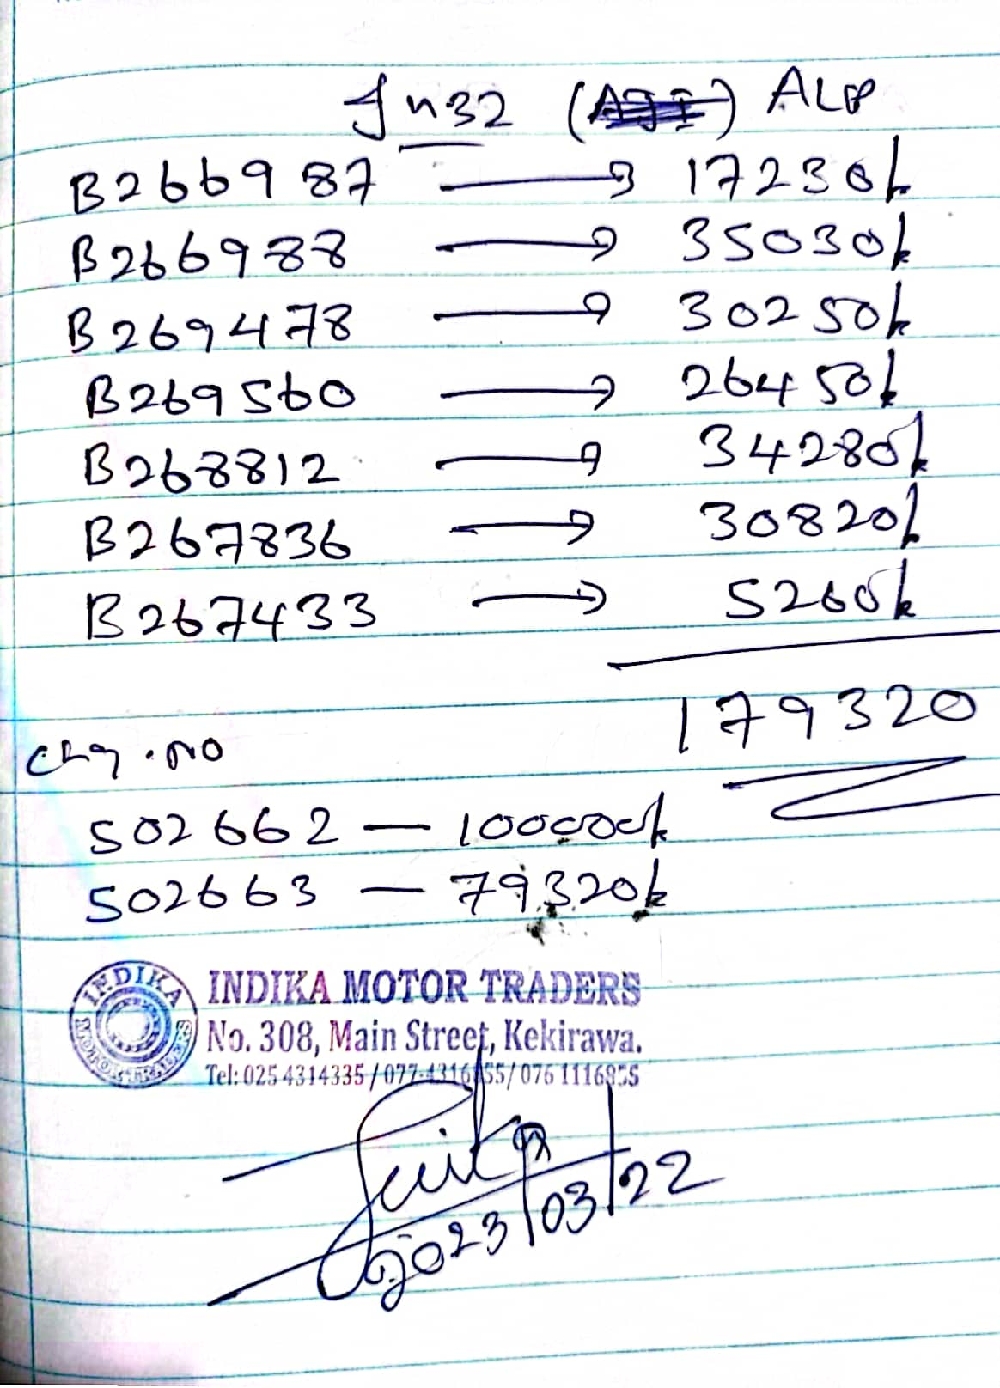 Jn32 (AJI) ALP
B266987 → 17230/-
B266988 → 35030/-
B269478 → 30250/-
B269560 → 26450/-
B268812 → 34280/-
B267836 → 30820/-
B267433 → 5260/-
179320
chq. no
502662 — 100000/-
502663 — 79320/-
INDIKA MOTOR TRADERS
INDIKA MOTOR TRADERS
No. 308, Main Street, Kekirawa.
Tel: 025 4314335 / 077 4316855 / 076 1116855
2023/03/22